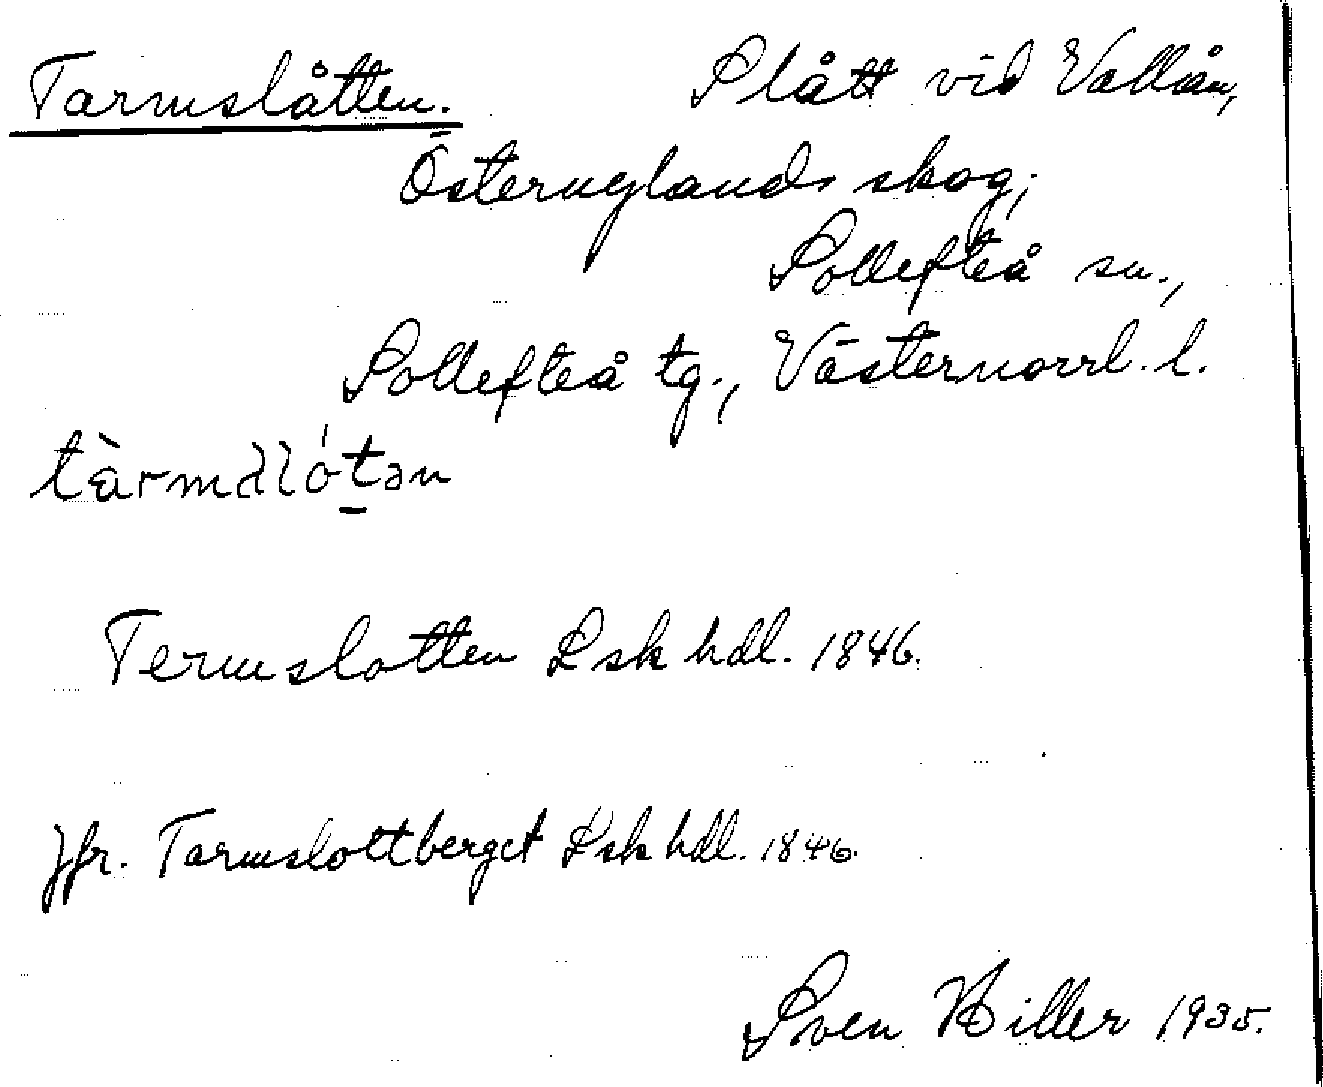 Tarmslåtten. Slått vid Vallån,
Östernylands skog;
Sollefteå sn.,
Sollefteå tg., Västernorrl. l.
Termslotten Lsk hdl. 1846.
Jfr. Tarmslottberget Lsk hdl. 1846.
Sven Hiller 1935.